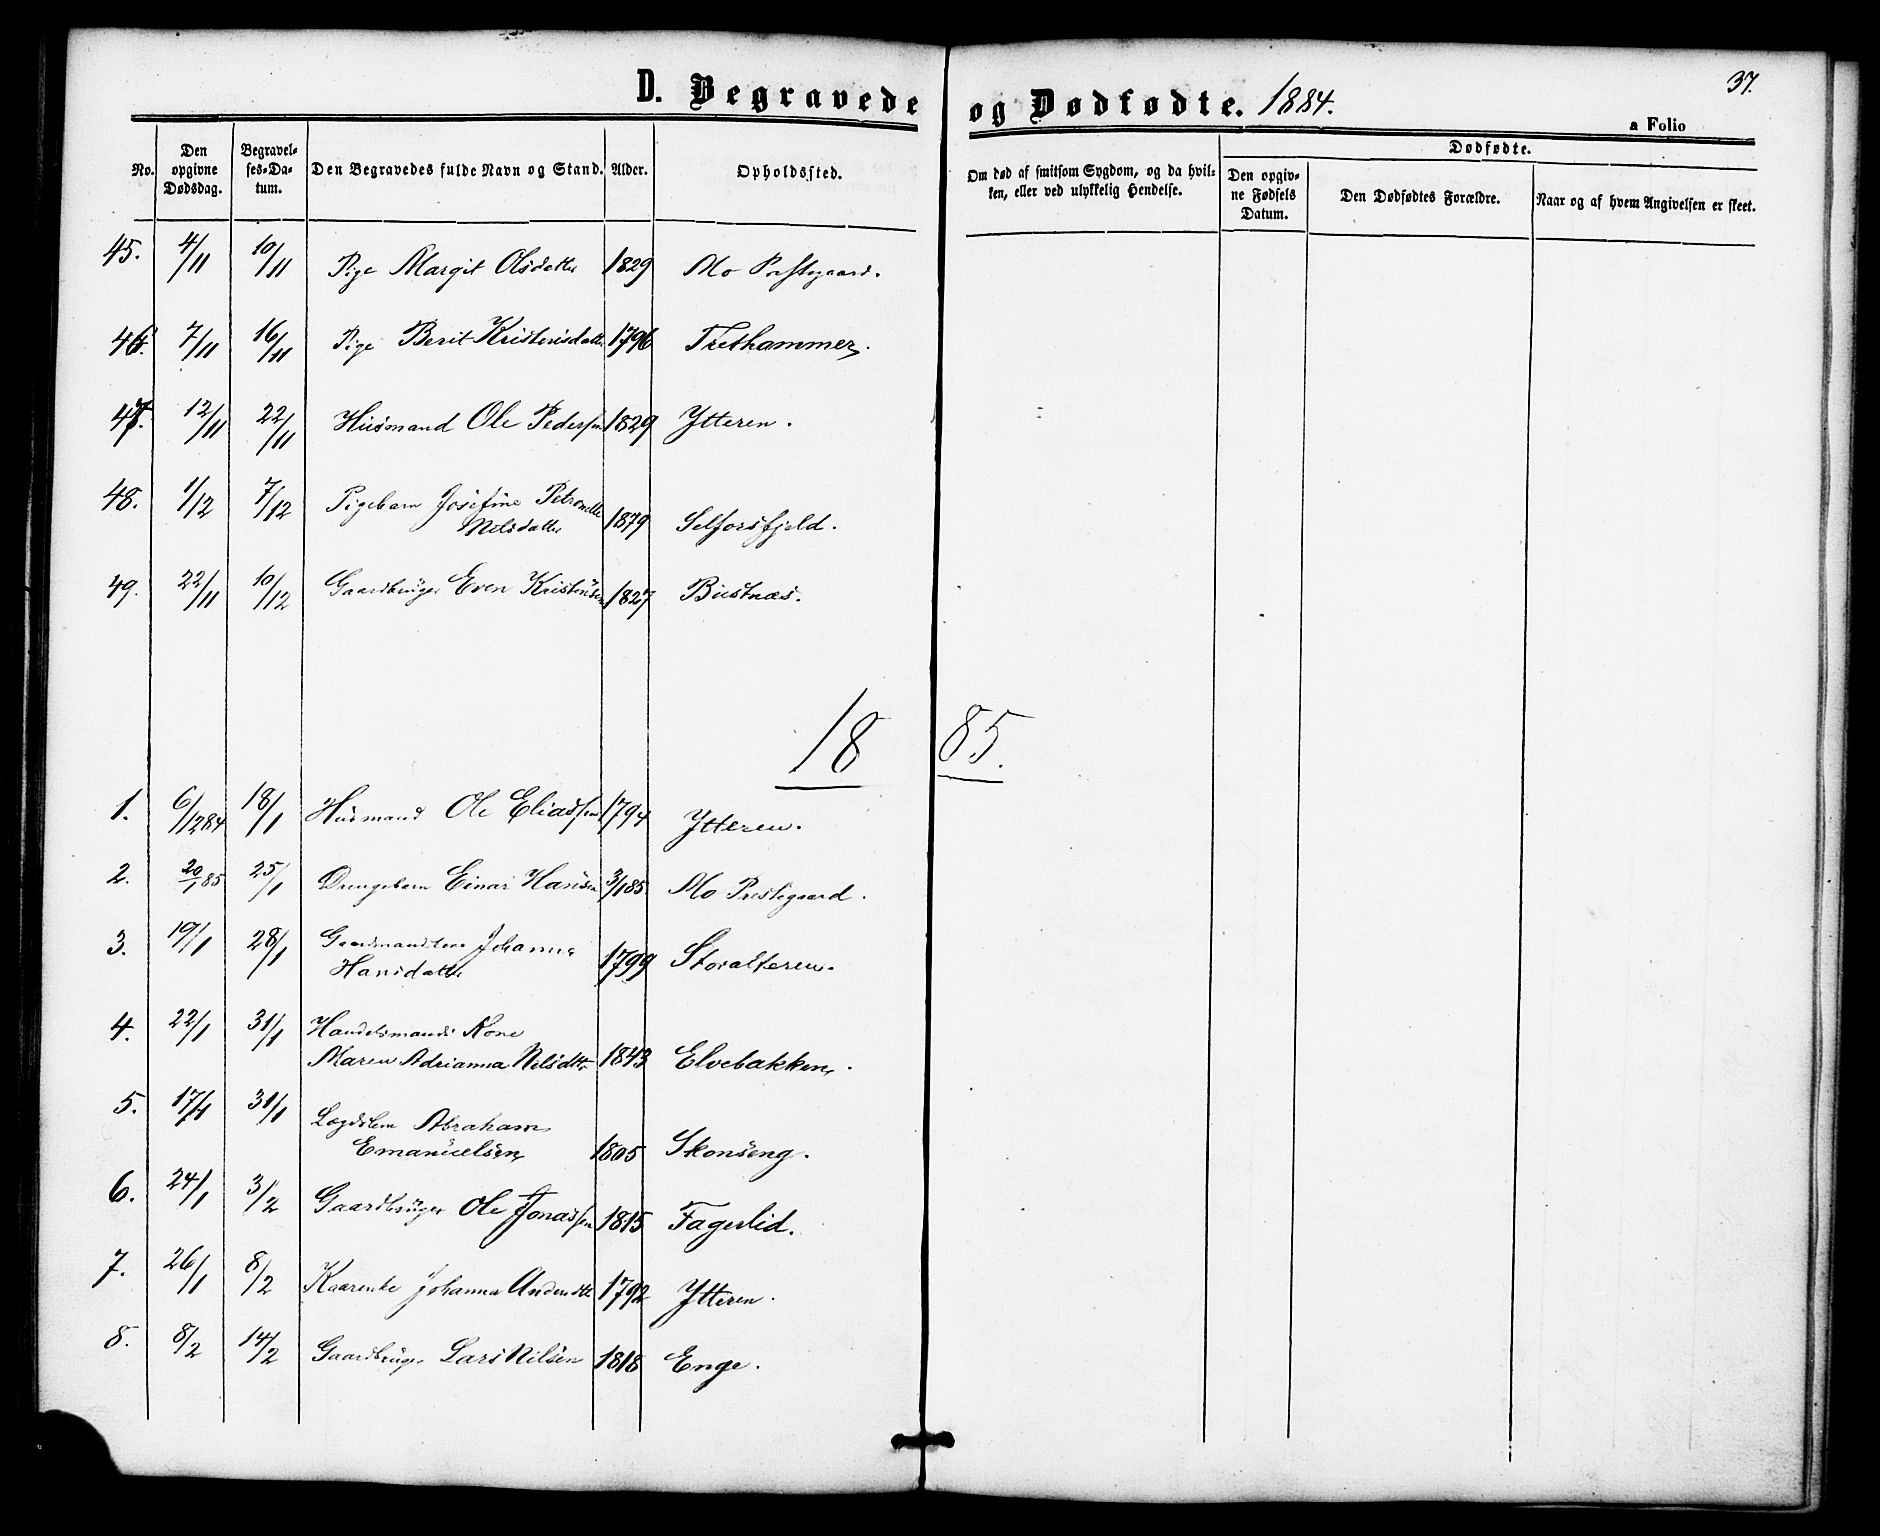 D. Begravede og Dødfødte. 1884.
37.
a Folio
No.
Den opgivne Dødsdag.
Begravelses-Datum.
Den Begravedes fulde Navn og Stand.
Alder.
Opholdssted.
Om død af smitsom Sygdom, og da hvilken, eller ved ulykkelig Hendelse.
Dødfødte.
Den opgivne Fødsels Datum.
Den Dødfødtes Forældre.
Naar og af hvem Angivelsen er skeet.
45. 4/11 10/11 Pige Margit Olsdatter 1829 Mo Prestegaard.
46. 7/11 16/11 Pige Berit Kristensdatter 1796 Trethammer.
47. 12/11 22/11 Husmand Ole Pedersen 1829 Ytteren.
48. 1/12 7/12 Pigebarn Josefine Petronelle
Nilsdatter 1879 Selforsfjeld.
49. 22/11 10/12 Gaardbruger Even Kristensen 1827 Bustnæs.
1885.
1. 6/12 84 18/1 Husmand Ole Eliassen 1794 Ytteren.
2. 20/1 85 25/1 Drengebarn Einar Hansen 3/1 85. Mo Prestegaard.
3. 19/1 28/1 Johanna
Hansdatter 1799 Storalteren.
4. 22/1 31/1 Handelsmands Kone
Maren Adrianna Nilsdtr 1843 Elvebakken.
5. 17/1 31/1 Lægdslem Abraham
Emanuelsen 1805 Skonseng.
6. 24/1 3/2 Gaardbruger Ole Jonassen 1815 Fagerlid.
7. 26/1 8/2 Kaarenke Johanna Andersdtr 1792 Ytteren.
8. 8/2 14/2 Gaardbruger Lars Nilsen 1818 Enge.